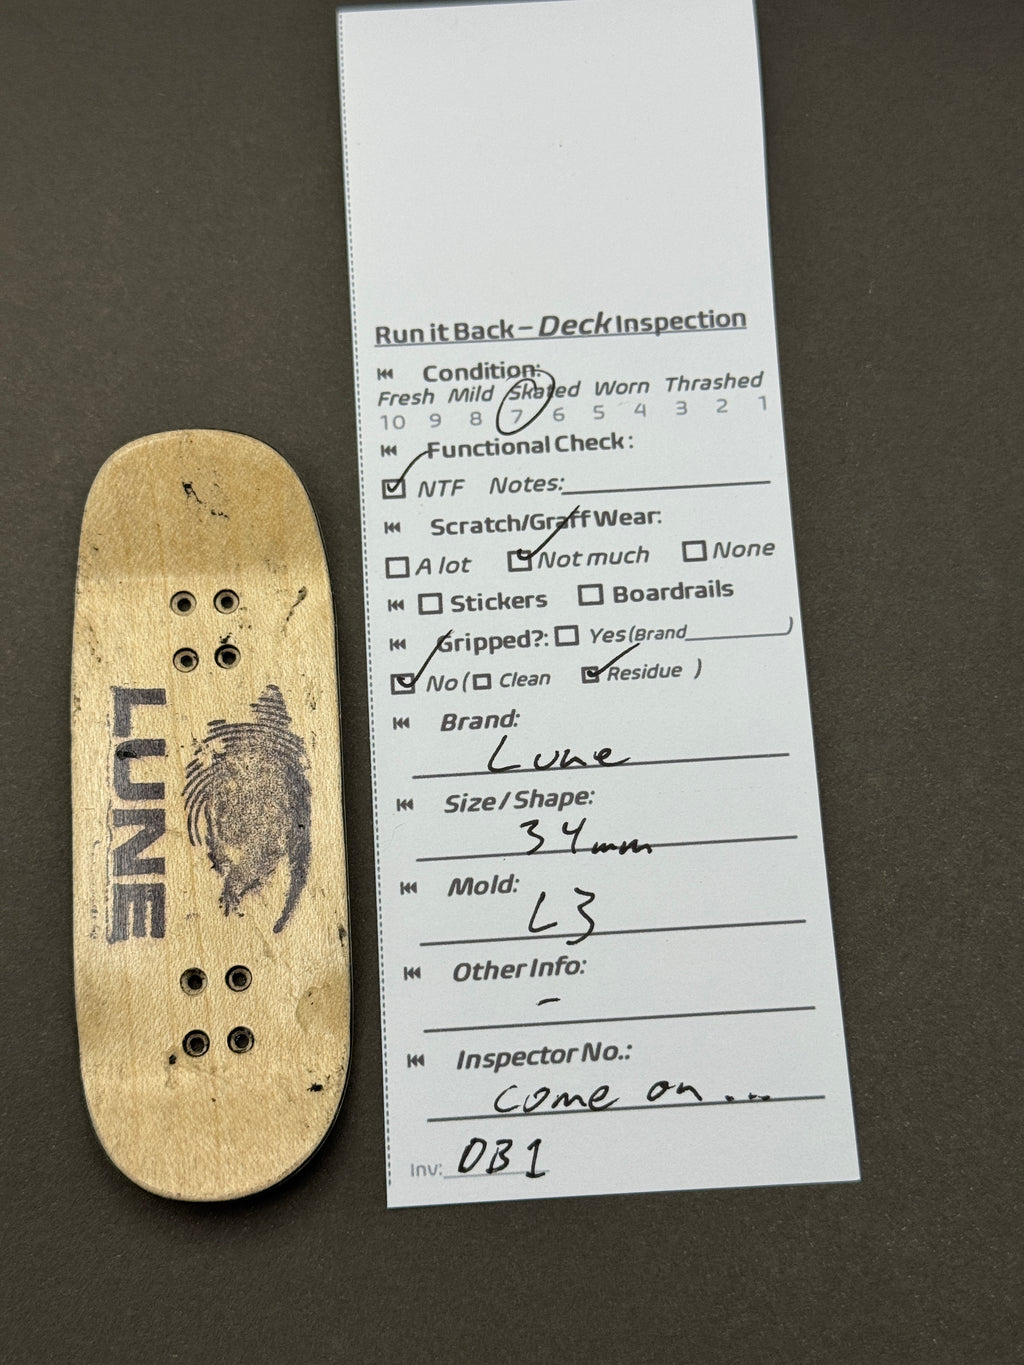 LUNE
Run it Back – Deck Inspection
Condition:
Fresh Mild Skated Worn Thrashed
10 9 8 7 6 5 4 3 2 1
Functional Check:
NTF Notes:
Scratch/Graff Wear:
A lot Not much None
Stickers Boardrails
Gripped?: Yes (Brand )
No ( Clean Residue )
Brand:
Lune
Size / Shape:
34mm
Mold:
L3
Other Info:
-
Inspector No.:
come on...
Inv: DB1